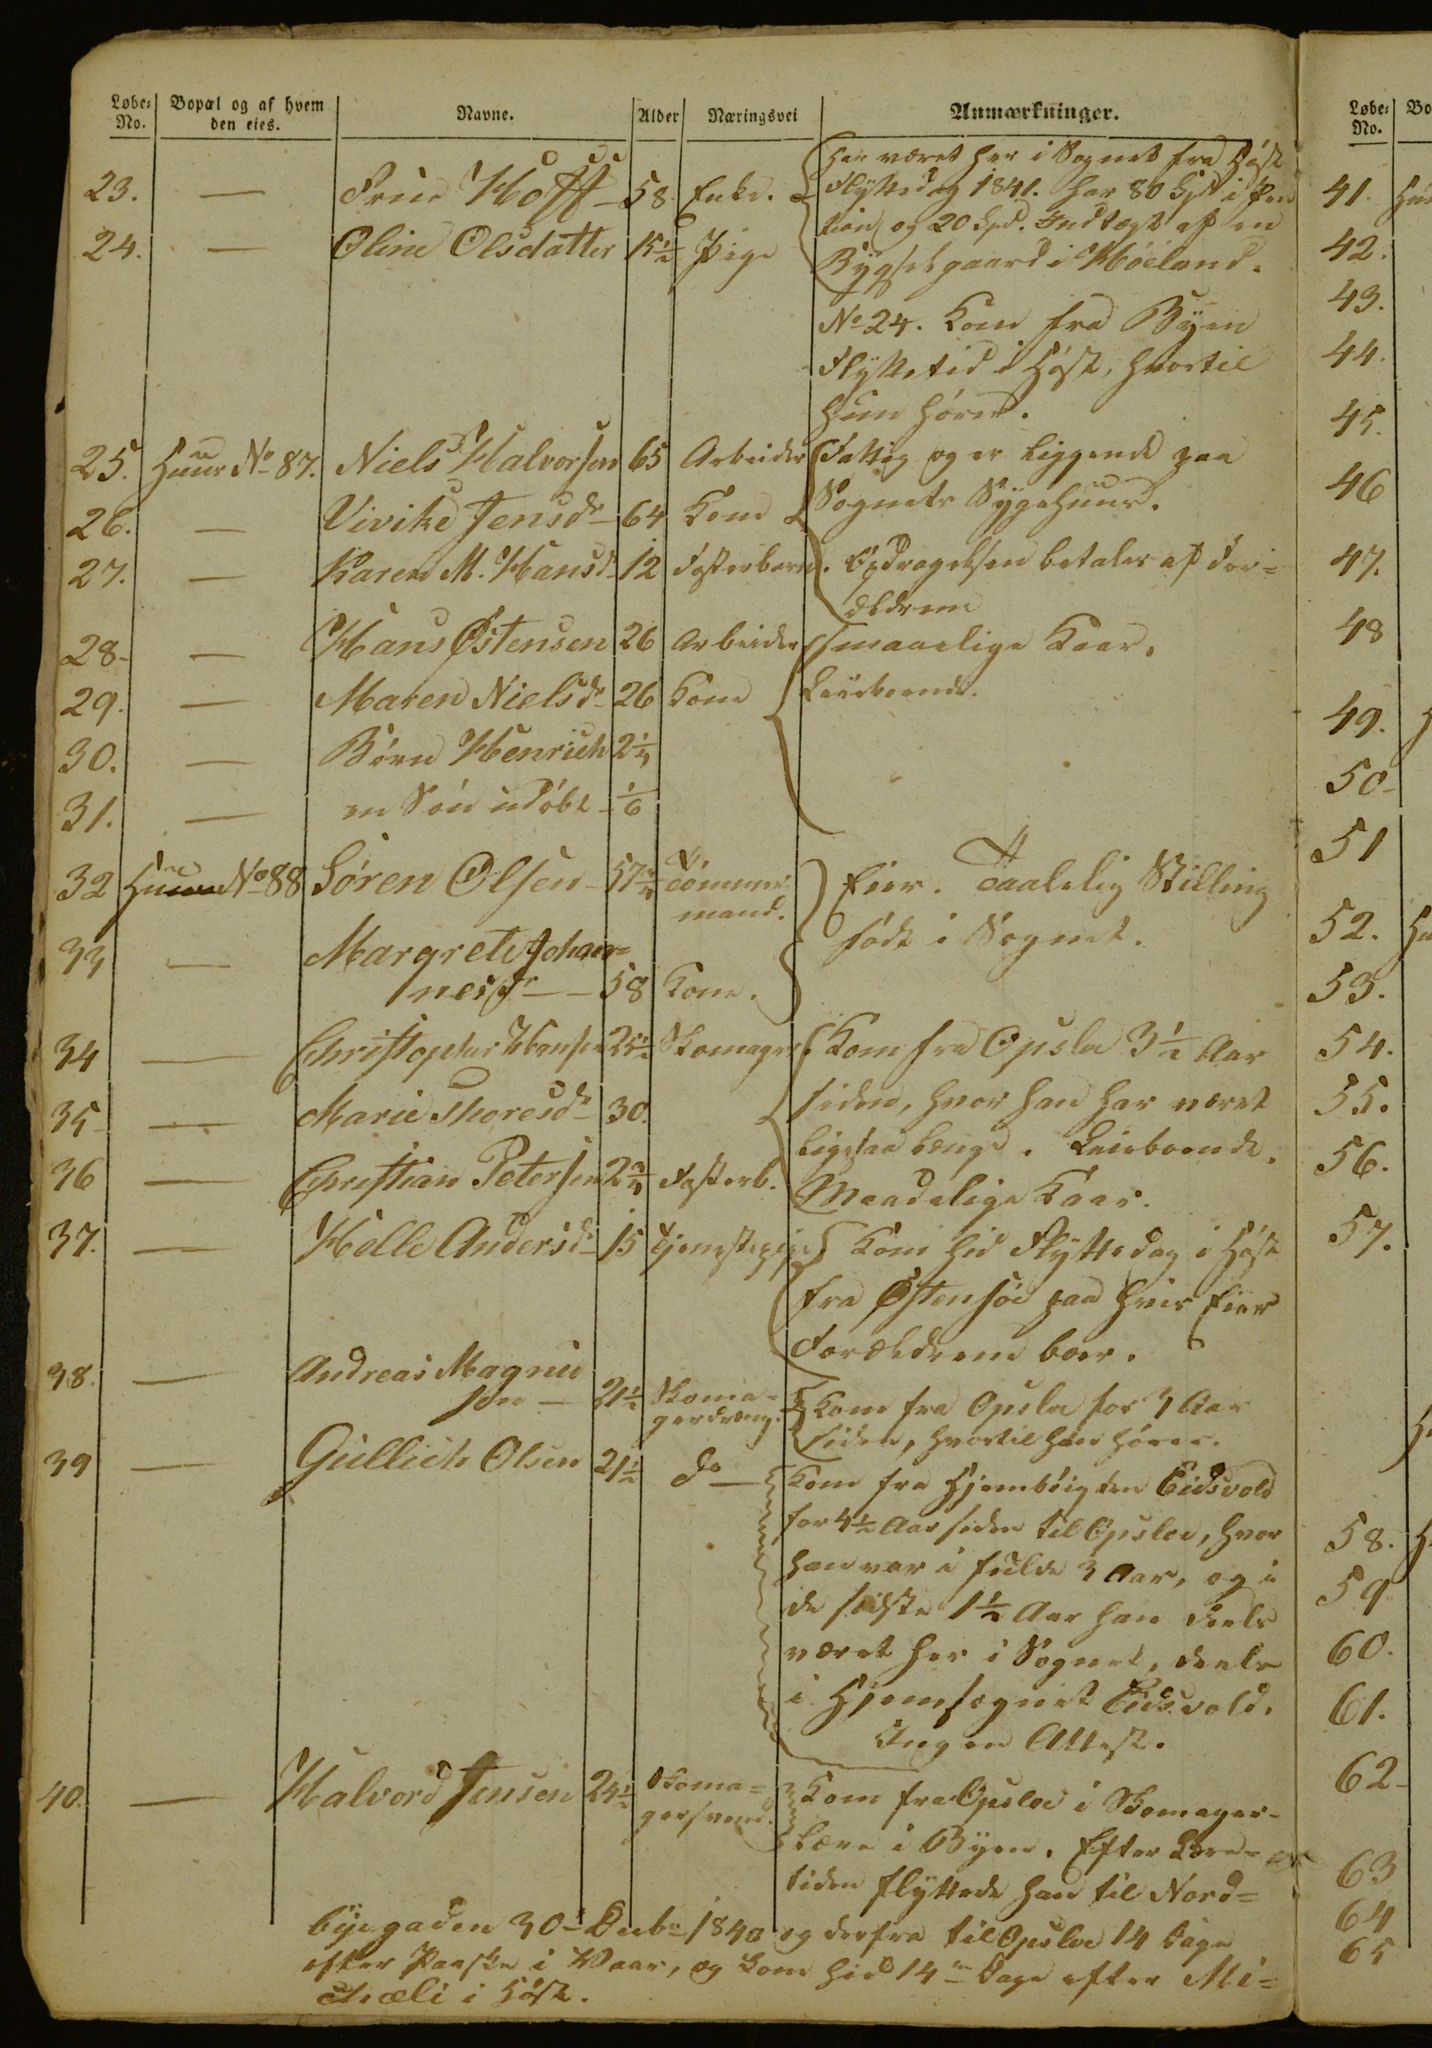 Løbe-No. | Bopæl og af hvem den eies. | Navne. | Alder | Næringsvei | Anmærkninger.
23. — Frue Hoff — 58 Enke. Har været her i Sognet fra Høst
Flyttedag 1841. Har 80 Spd i Pen
tion og 20 Spd. Indtægt af en
24. — Oline Olsdatter 15½ Pige
Bygselgaard i Høiland.
No 24. Kom fra Byen
Flyttetid i Høst, hvortil
hun hører.
25. Huus No 87. Niels Halvorsen 65 Arbeider Fattig og er liggende paa
26. — Vivike Jensdr — 64 Kone Sognets Sygehuus.
27. — Karen M. Hansd. 12 Fosterbarn. Opdragelsen betales af For-
ældrene
28. — Hans Østensen 26 Arbeider Smaaelige Kaar.
29. — Maren Nielsdr 26 Kone Leieboende.
30. — Børn Henrich 2¼
31. — en Søn udøbt — 1/6
32 Huus No 88 Søren Olsen — 57¾ Tømmer-
mand. Eier. Taalelig Stilling
født i Sognet.
33 — Margrete Johan-
nesdr — 58 Kone.
34 — Christopher Hansen 25½ Skomager. Kom fra Opslo 3½ Aar
35 — Marie Thoresdr 30. siden, hvor han har været
ligesaa længe. Leieboende.
36 — Christian Petersen 2¾ Fosterb. Maadelige Kaar.
37. — Helle Andersd. 15 Tjenestepige Kom hid Flyttedag i Høst
fra Østensøe paa hvis Eier
Forældrene boer.
38. — Andreas Magnu
sen — 21½ Skoma-
gerdreng. Kom fra Opslo for 3 Aar
siden, hvortil han hører.
39 — Gullich Olsen 21½ do — Kom fra Hjembøigden Eidsvold
for 4½ Aar siden til Opsloe, hvor
han var i fulde 3 Aar, og i
de sidste 1½ Aar han deels
været her i Sognet, deels
i Hjemsognet Eidsvold.
Ingen Attest.
40. — Halvord Jensen 24½ Skoma-
gersvend. Kom fra Opsloe i Skomager-
lære i Byen. Efter Lære-
tiden flyttede han til Nord-
byegaden 30 Decbr 1840 og derfra til Opsloe 14 Dage
efter Paaske i Vaar, og kom hid 14 Dage efter Mi-
chæli i Høst.
Løbe-No. | Bo
41.
42.
43.
44.
45.
46
47.
48
49.
50
51
52.
53.
54.
55.
56.
57.
58.
59
60.
61.
62
63
64
65